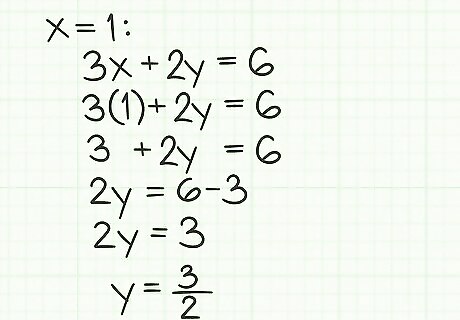 x = 1:
3x + 2y = 6
3(1) + 2y = 6
3 + 2y = 6
2y = 6 - 3
2y = 3
y = 3/2